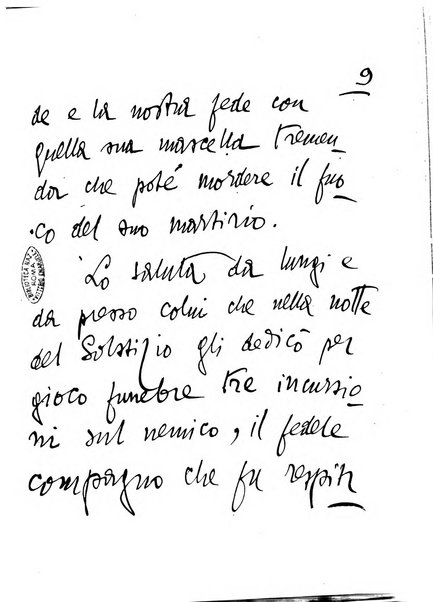 9
de e la nostra fede con
quella sua mascella tremen
da che poté mordere il fuo
co del suo martirio.
Lo saluta da lungi e
da presso colui che nella notte
del Solstizio gli dedicò per
gioco funebre tre incursio
ni sul nemico, il fedele
compagno che fu respin
BIBLIOTECA NAZ
ROMA
VITTORIO EMANUELE